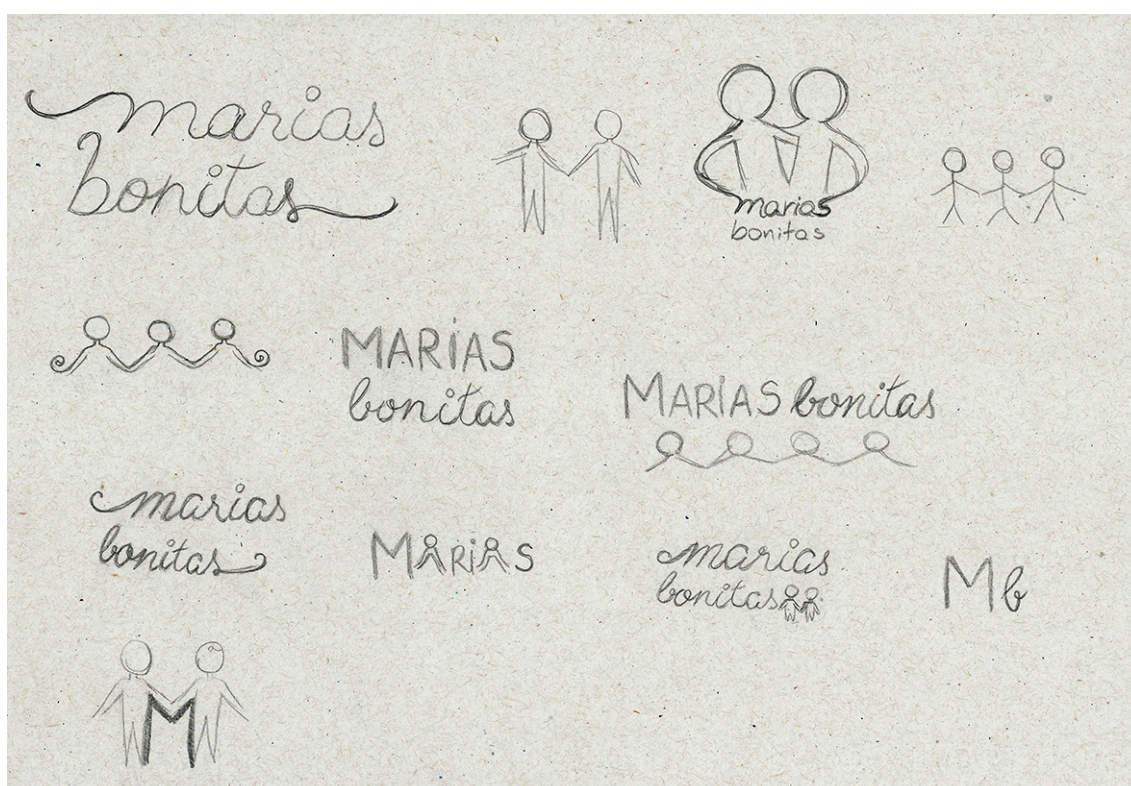 marias
bonitas
marias
bonitas
MARÍAS
bonitas
MARÍAS bonitas
marias
bonitas
MARiAS
marias
bonitas
Mb
M